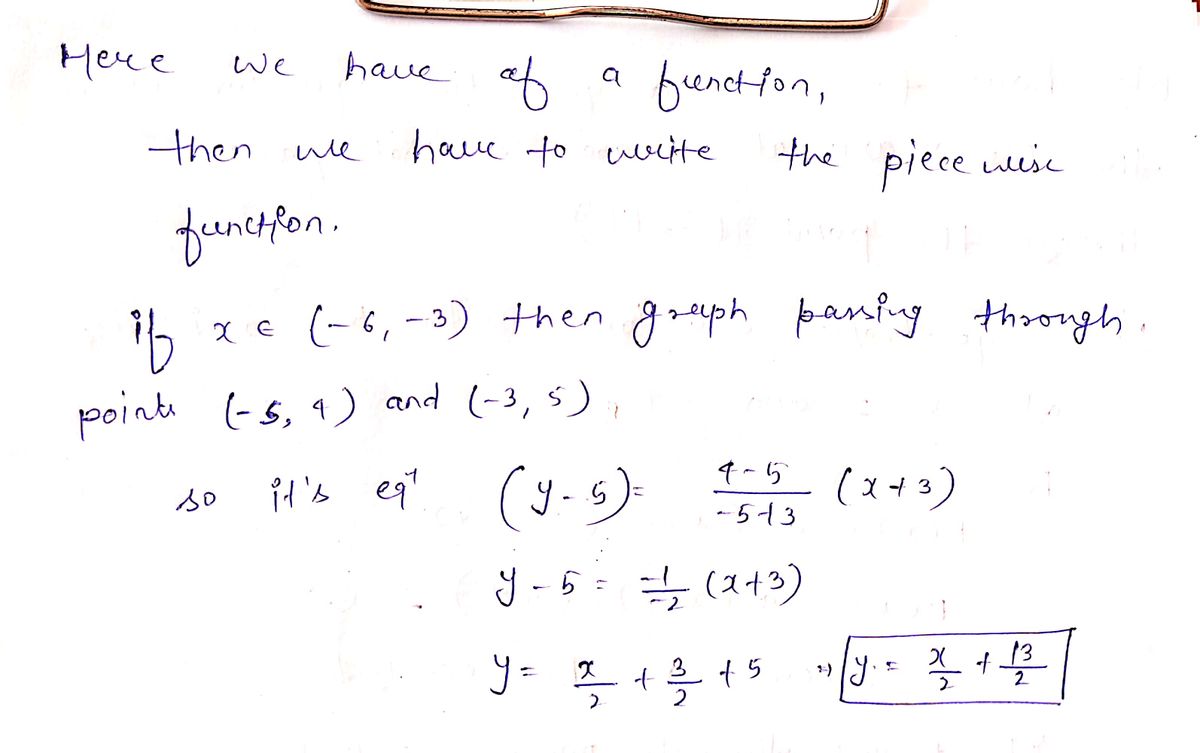 Here we have of a function,
then we have to write the piece wise
function.
if x ∈ (-6, -3) then graph passing through.
points (-5, 4) and (-3, 5),
so it's eqⁿ (y - 5) = \frac{4-5}{-5+3} (x+3)
y - 5 = \frac{-1}{-2} (x+3)
y = \frac{x}{2} + \frac{3}{2} + 5 ⇒ y = \frac{x}{2} + \frac{13}{2}